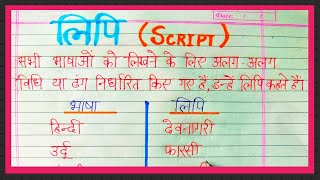 Date :
लिपि (SCRIPT)
सभी भाषाओं को लिखने के लिए अलग-अलग
विधि या ढंग निर्धारित किए गए हैं, इन्हें लिपि कहते हैं।
भाषा लिपि
हिन्दी देवनागरी
उर्दू फारसी